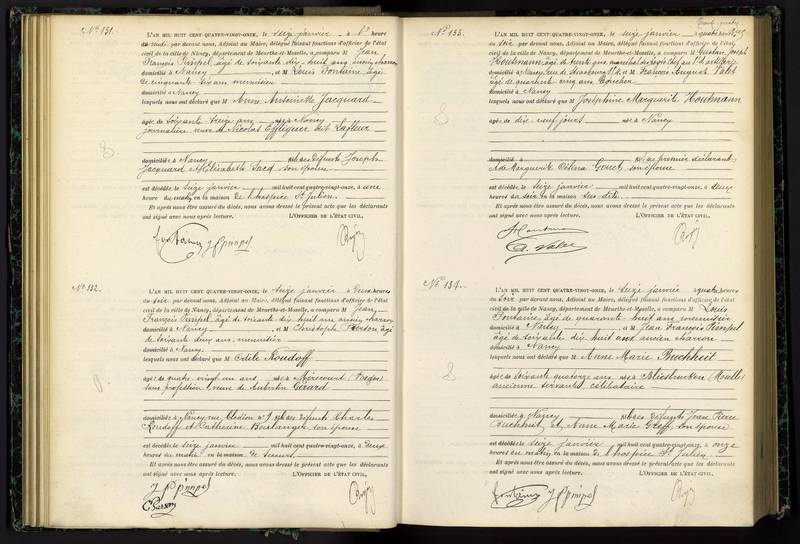 No 131.
L'AN MIL HUIT CENT QUATRE-VINGT-ONZE, le seize janvier à heure
du par devant nous, Adjoint au Maire, délégué faisant fonctions d'officier de l'état
civil de la ville de Nancy, département de Meurthe-et-Moselle, a comparu M Jean
François Pimpel âgé de soixante dix huit ans ancien charron
domicilié à Nancy et M Louis Fontaine âgé
de cinquante ans menuisier
domicilié à Nancy
lesquels nous ont déclaré que M Anne Antoinette Jacquard
âgée de soixante treize ans née à Nancy
journalière veuve M Nicolas Effliguer dit Lafleur
domiciliée à Nancy fille des défunts Joseph
Jacquard & Elisabeth son épouse
est décédée le seize janvier mil huit cent quatre-vingt-onze, à une
heure du matin en la maison de l'hospice St Julien.
Et après nous être assuré du décès, nous avons dressé le présent acte que les déclarants
ont signé avec nous après lecture. L'OFFICIER DE L'ÉTAT CIVIL,
Fontaine J F pimpel
No 132.
L'AN MIL HUIT CENT QUATRE-VINGT-ONZE, le seize janvier à deux heures
du soir par devant nous, Adjoint au Maire, délégué faisant fonctions d'officier de l'état
civil de la ville de Nancy, département de Meurthe-et-Moselle, a comparu M Jean
François Pimpel âgé de soixante dix huit ans ancien charron
domicilié à Nancy et M Christophe Person âgé
de soixante deux ans, menuisier
domicilié à Nancy
lesquels nous ont déclaré que M Odile Roudoff
âgée de quatre vingt un ans née à Méricourt (Vosges)
sans profession, veuve de Gérard
domiciliée à Nancy, rue Clodion No 9 fille des défunts Charles
Roudoff et Catherine Boulanger son épouse
est décédée le seize janvier mil huit cent quatre-vingt-onze, à deux
heures du matin en la maison
Et après nous être assuré du décès, nous avons dressé le présent acte que les déclarants
ont signé avec nous après lecture. L'OFFICIER DE L'ÉTAT CIVIL,
J F pimpel
C. Person
No 133.
L'AN MIL HUIT CENT QUATRE-VINGT-ONZE, le seize janvier à quatre heures
du soir par devant nous, Adjoint au Maire, délégué faisant fonctions d'officier de l'état
civil de la ville de Nancy, département de Meurthe-et-Moselle, a comparu M Gustave Joseph
Houtmann, âgé de trente ans, maréchal des logis chef au d'artillerie
domicilié à Nancy, rue de Strasbourg et M François Auguste Valet
âgé de quarante cinq ans
domicilié à Nancy
lesquels nous ont déclaré que M Joséphine Marguerite Houtmann
âgée de dix neuf jours née à Nancy
domiciliée à fille du premier déclarant
& de Marguerite Célina son épouse
est décédée le seize janvier mil huit cent quatre-vingt-onze, à deux
heures du soir en la maison sus dite
Et après nous être assuré du décès, nous avons dressé le présent acte que les déclarants
ont signé avec nous après lecture. L'OFFICIER DE L'ÉTAT CIVIL,
Houtmann
A. Valet
No 134.
L'AN MIL HUIT CENT QUATRE-VINGT-ONZE, le seize janvier à quatre heures
du soir par devant nous, Adjoint au Maire, délégué faisant fonctions d'officier de l'état
civil de la ville de Nancy, département de Meurthe-et-Moselle, a comparu M Louis
Fontaine âgé de quarante huit ans, menuisier
domicilié à Nancy et M Jean François Pimpel
âgé de soixante dix huit ans ancien charron
domicilié à Nancy
lesquels nous ont déclaré que M Anne Marie Buchheit
âgée de soixante quatorze ans née à Bliesbrucken (Moselle)
ancienne servante, célibataire
domiciliée à Nancy fille des défunts Jean Pierre
Buchheit et Anne Marie Greff, son épouse
est décédée le seize janvier mil huit cent quatre-vingt-onze, à onze
heures du matin en la maison de l'hospice St Julien
Et après nous être assuré du décès, nous avons dressé le présent acte que les déclarants
ont signé avec nous après lecture. L'OFFICIER DE L'ÉTAT CIVIL,
Fontaine J F pimpel